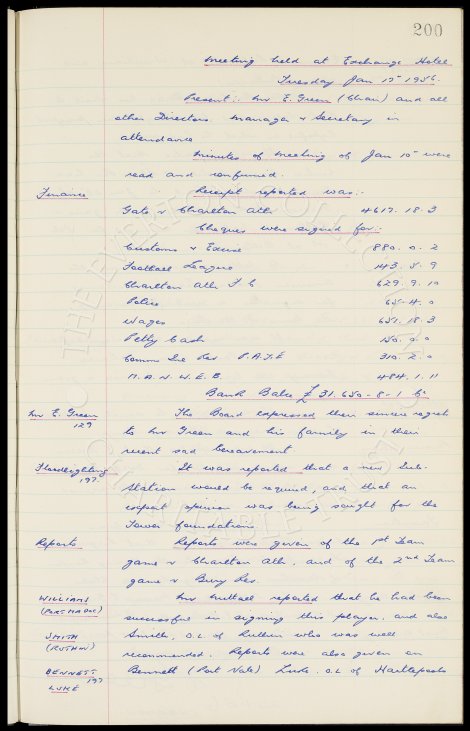 200
Meeting held at Exchange Hotel
Tuesday Jan 17th 1956.
Present:- Mr E. Green (Chair) and all
other Directors Manager & Secretary in
attendance
Minutes of meeting of Jan 10th were
read and confirmed.
Finance Receipt reported was:-
Gate v Charlton Ath 4617.18.3
Cheques were signed for:-
Customs & Excise 880.0.2
Football League 143.5.9
Charlton Ath F C 629.9.10
Police 65.4.0
Wages 651.18.3
Petty Cash 150.0.0
Comm Inc Rev P.A.Y.E 310.2.0
M.A.N.W.E.B. 484.1.11
Bank Balce £31.650-8-1
Mr E. Green The Board expressed their sincere regret
129 to Mr Green and his family in their
recent sad bereavement.
Floodlighting It was reported that a new Sub-
197 Station would be required, and that an
expert opinion was being sought for the
Tower foundations.
Reports Reports were given of the 1st Team
game v Charlton Ath, and of the 2nd Team
game v Bury Res.
WILLIAMS Mr Nuttall reported that he had been
(PORTMADOC) successful in signing this player, and also
SMITH Smith, O.L. of Ruthin who was well
(RUTHIN) recommended. Reports were also given on
BENNETT 197 Bennett (Port Vale) Luke, O.L of Hartlepools
LUKE
© THE EVERTON COLLECTION CHARITABLE TRUST